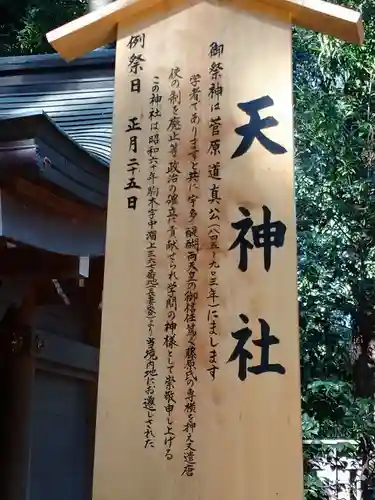 天神社
御祭神は菅原道真公(八四五~九〇三年)にまします
学者でありますと共に宇多、醍醐両天皇の御信任篤く藤原氏の専横を抑え又遣唐
使の制を廃止等政治の確立に貢献せられ学問の神様として崇敬申し上げる
この神社は昭和六十年駒木字中溜上三六二番地より当境内地にお遷しされた
例祭日 正月二十五日